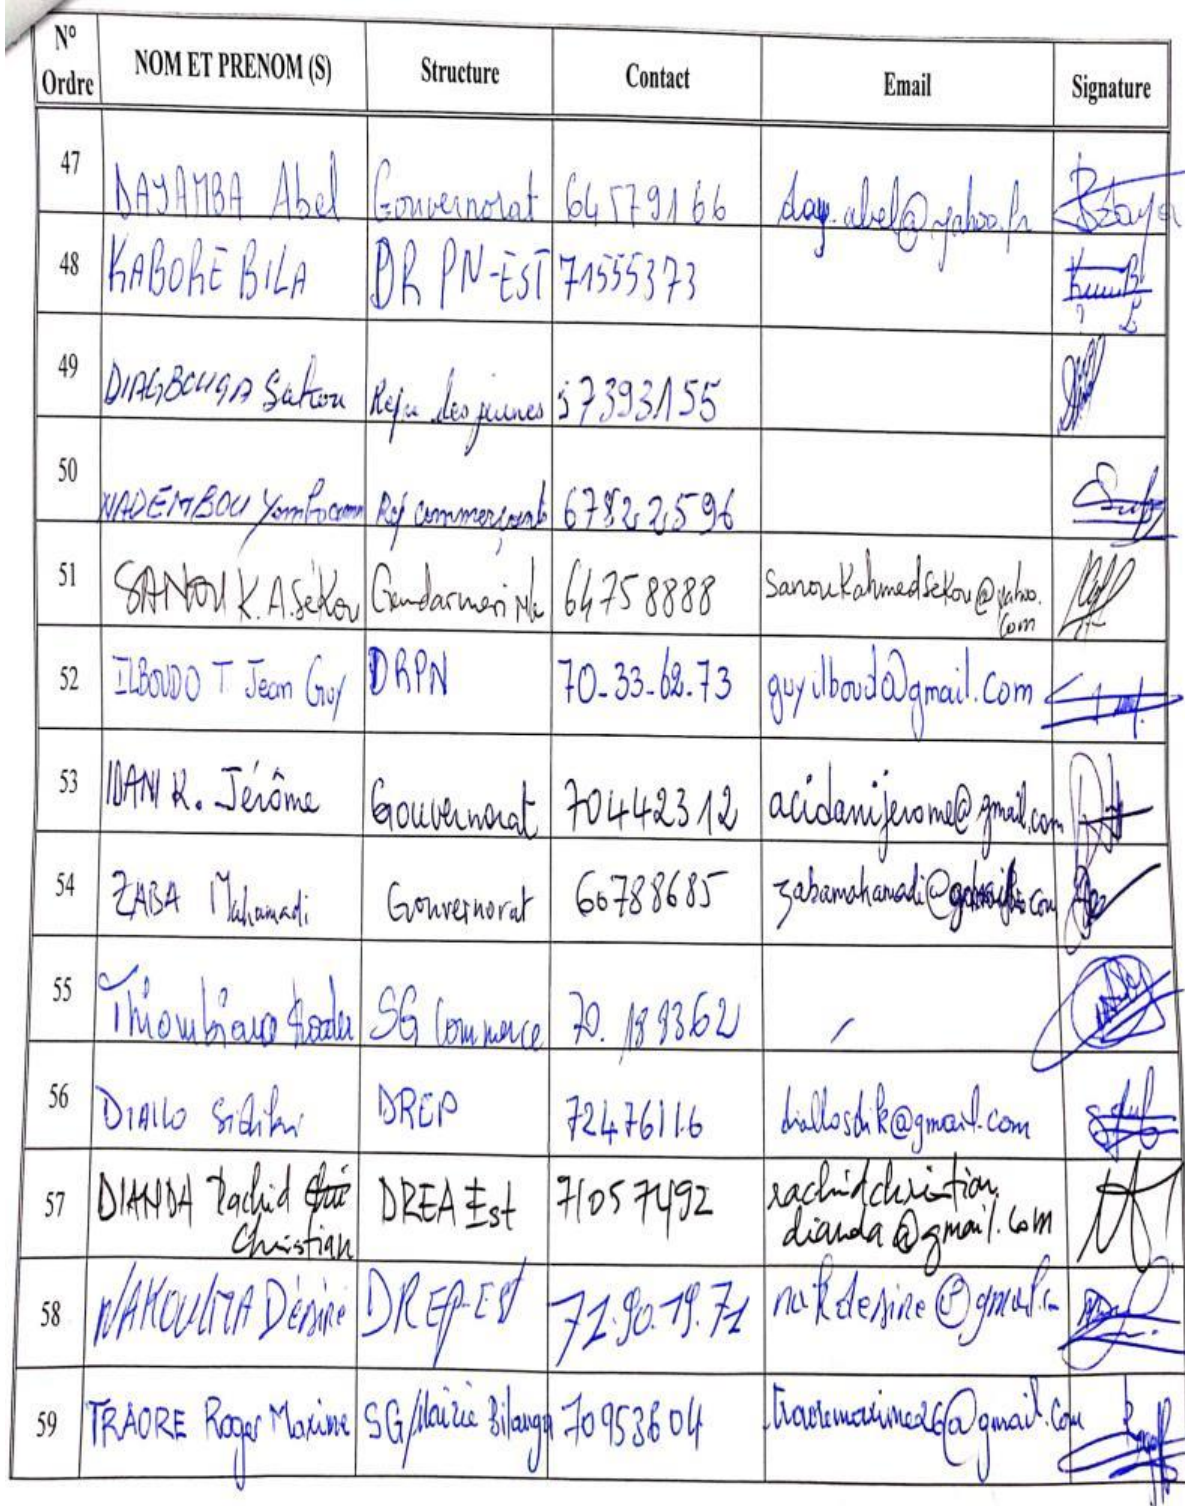 N° Ordre NOM ET PRENOM (S) Structure Contact Email Signature
47 DAYAMBA Abel Gouvernorat 64579166 day.abel@yahoo.fr
48 KABORE BILA DR PN-EST 71555373
49 DIAGBOUGA Repr des jeunes 57393155
50 WADEMBOU Rep commerçants 67822596
51 SANOU K. A. Sékou Gendarmerie 64758888 Sanoukahmedsekou@yahoo.com
52 ILBOUDO T Jean Guy DRPN 70-33-62-73 guyilboud@gmail.com
53 IDANI K. Jérôme Gouvernorat 70442312 acidanijerome@gmail.com
54 ZABA Mahamadi Gouvernorat 66788685
55 Thiombiano SG Commerce /
56 DIALLO Sidiki DREP 72476116 diallosdik@gmail.com
57 DIANDA Rachid Christian DREA Est 71057492 rachidchristiandianda@gmail.com
58 NAKOULMA Désiré DREP-EST 71.90.19.71 nakdesire@gmail.
59 TRAORE Roger Maxime SG/Mairie Bilanga 70953604 traoremaxime26@gmail.com